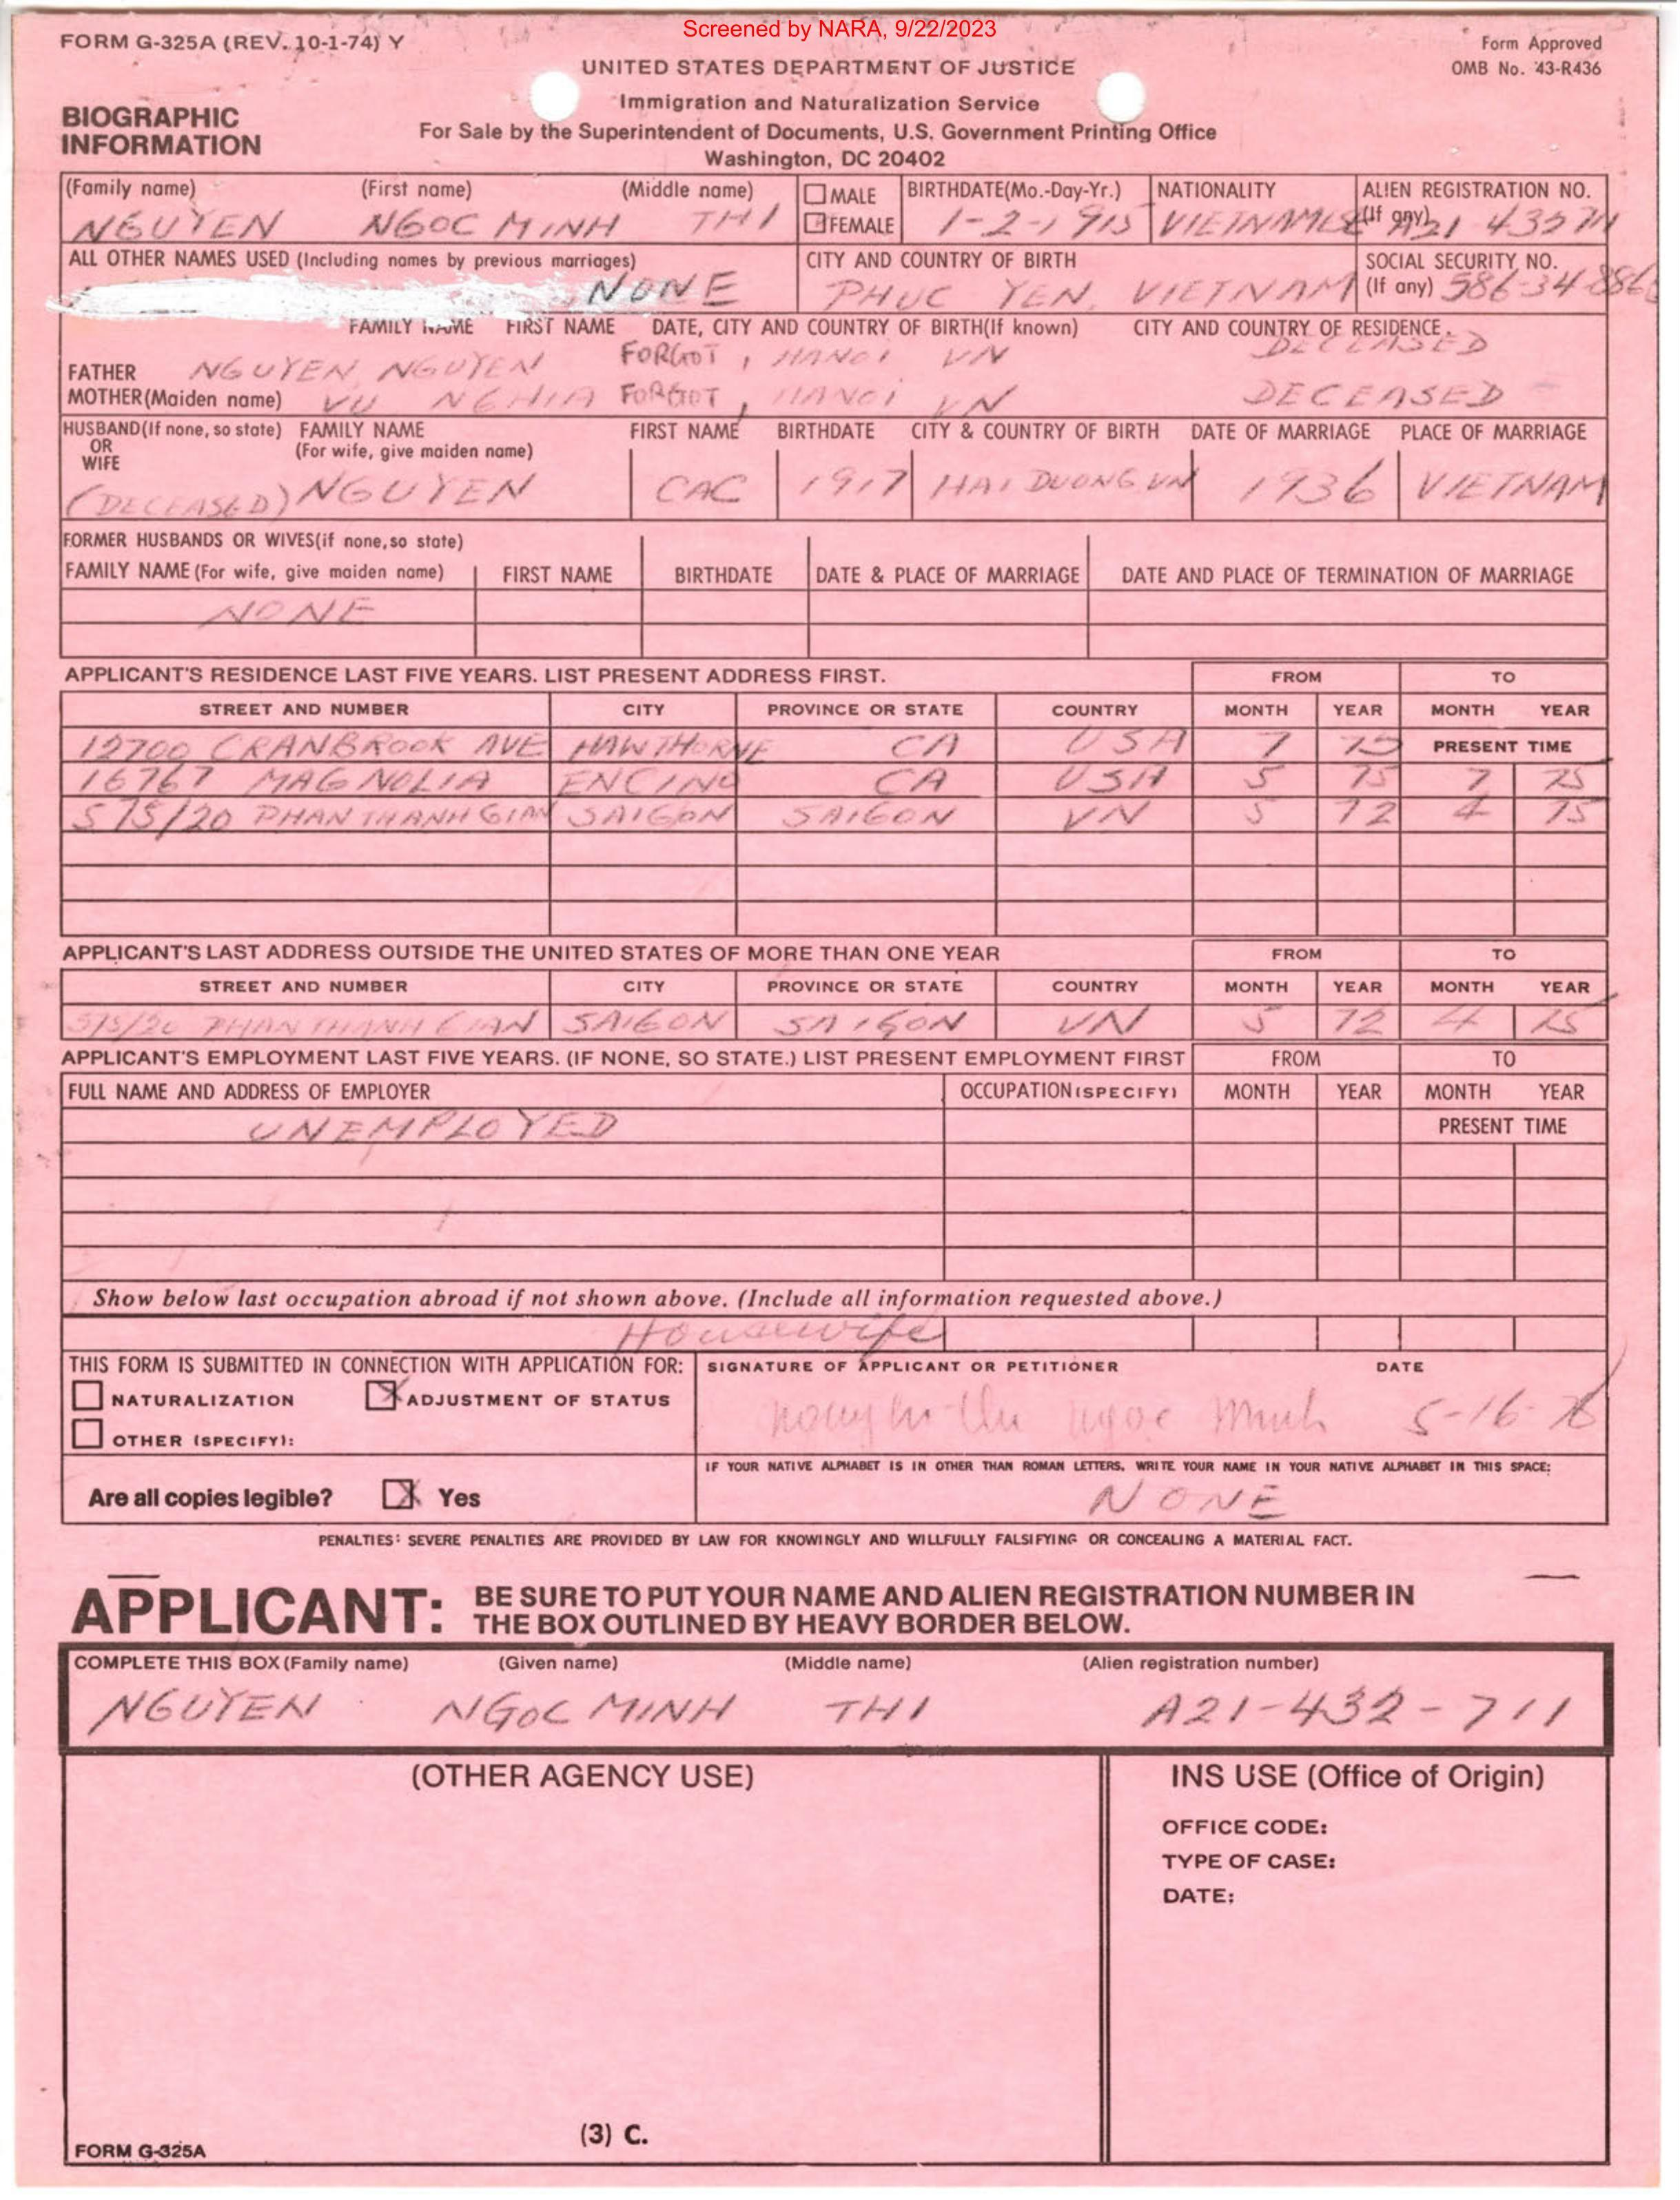 Screened by NARA, 9/22/2023
FORM G-325A (REV. 10-1-74) Y
Form Approved
OMB No. 43-R436
UNITED STATES DEPARTMENT OF JUSTICE
Immigration and Naturalization Service
For Sale by the Superintendent of Documents, U.S. Government Printing Office
Washington, DC 20402
BIOGRAPHIC
INFORMATION
(Family name) (First name) (Middle name) MALE BIRTHDATE(Mo.-Day-Yr.) NATIONALITY ALIEN REGISTRATION NO.
NGUYEN NGOC MINH THI FEMALE 1-2-1915 VIETNAMESE (If any) A21 432711
ALL OTHER NAMES USED (Including names by previous marriages) CITY AND COUNTRY OF BIRTH SOCIAL SECURITY NO.
NONE PHUC YEN, VIETNAM (If any) 586-34-886
FAMILY NAME FIRST NAME DATE, CITY AND COUNTRY OF BIRTH(If known) CITY AND COUNTRY OF RESIDENCE.
FATHER NGUYEN, NGUYEN FORGOT, HANOI VN DECEASED
MOTHER(Maiden name) VU NGHIA FORGOT, HANOI VN DECEASED
HUSBAND(If none, so state) FAMILY NAME FIRST NAME BIRTHDATE CITY & COUNTRY OF BIRTH DATE OF MARRIAGE PLACE OF MARRIAGE
OR (For wife, give maiden name)
WIFE
(DECEASED) NGUYEN CAC 1917 HAI DUONG VN 1936 VIETNAM
FORMER HUSBANDS OR WIVES(if none,so state)
FAMILY NAME (For wife, give maiden name) FIRST NAME BIRTHDATE DATE & PLACE OF MARRIAGE DATE AND PLACE OF TERMINATION OF MARRIAGE
NONE
APPLICANT'S RESIDENCE LAST FIVE YEARS. LIST PRESENT ADDRESS FIRST. FROM TO
STREET AND NUMBER CITY PROVINCE OR STATE COUNTRY MONTH YEAR MONTH YEAR
12700 CRANBROOK AVE HAWTHORNE CA USA 7 75 PRESENT TIME
16767 MAGNOLIA ENCINO CA USA 5 75 7 75
575/20 PHAN THANH GIAN SAIGON SAIGON VN 5 72 4 75
APPLICANT'S LAST ADDRESS OUTSIDE THE UNITED STATES OF MORE THAN ONE YEAR FROM TO
STREET AND NUMBER CITY PROVINCE OR STATE COUNTRY MONTH YEAR MONTH YEAR
575/20 PHAN THANH GIAN SAIGON SAIGON VN 5 72 4 75
APPLICANT'S EMPLOYMENT LAST FIVE YEARS. (IF NONE, SO STATE.) LIST PRESENT EMPLOYMENT FIRST FROM TO
FULL NAME AND ADDRESS OF EMPLOYER OCCUPATION(SPECIFY) MONTH YEAR MONTH YEAR
UNEMPLOYED PRESENT TIME
Show below last occupation abroad if not shown above. (Include all information requested above.)
Housewife
THIS FORM IS SUBMITTED IN CONNECTION WITH APPLICATION FOR: SIGNATURE OF APPLICANT OR PETITIONER DATE
NATURALIZATION X ADJUSTMENT OF STATUS
Minh 5-16-76
OTHER (SPECIFY):
IF YOUR NATIVE ALPHABET IS IN OTHER THAN ROMAN LETTERS, WRITE YOUR NAME IN YOUR NATIVE ALPHABET IN THIS SPACE:
Are all copies legible? X Yes NONE
PENALTIES: SEVERE PENALTIES ARE PROVIDED BY LAW FOR KNOWINGLY AND WILLFULLY FALSIFYING OR CONCEALING A MATERIAL FACT.
APPLICANT: BE SURE TO PUT YOUR NAME AND ALIEN REGISTRATION NUMBER IN
THE BOX OUTLINED BY HEAVY BORDER BELOW.
COMPLETE THIS BOX (Family name) (Given name) (Middle name) (Alien registration number)
NGUYEN NGOC MINH THI A21-432-711
(OTHER AGENCY USE) INS USE (Office of Origin)
OFFICE CODE:
TYPE OF CASE:
DATE:
(3) C.
FORM G-325A